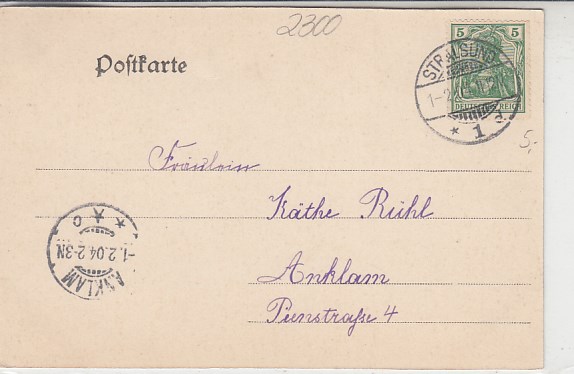 2300
5 5
DEUTSCHES REICH
STRALSUND
1-2
* 1
Postkarte
5,-
Fräulein
Käthe Rühl
Anklam
Peenstraße 4
* * C
-1.2.04.2-3N.
ANKLAM